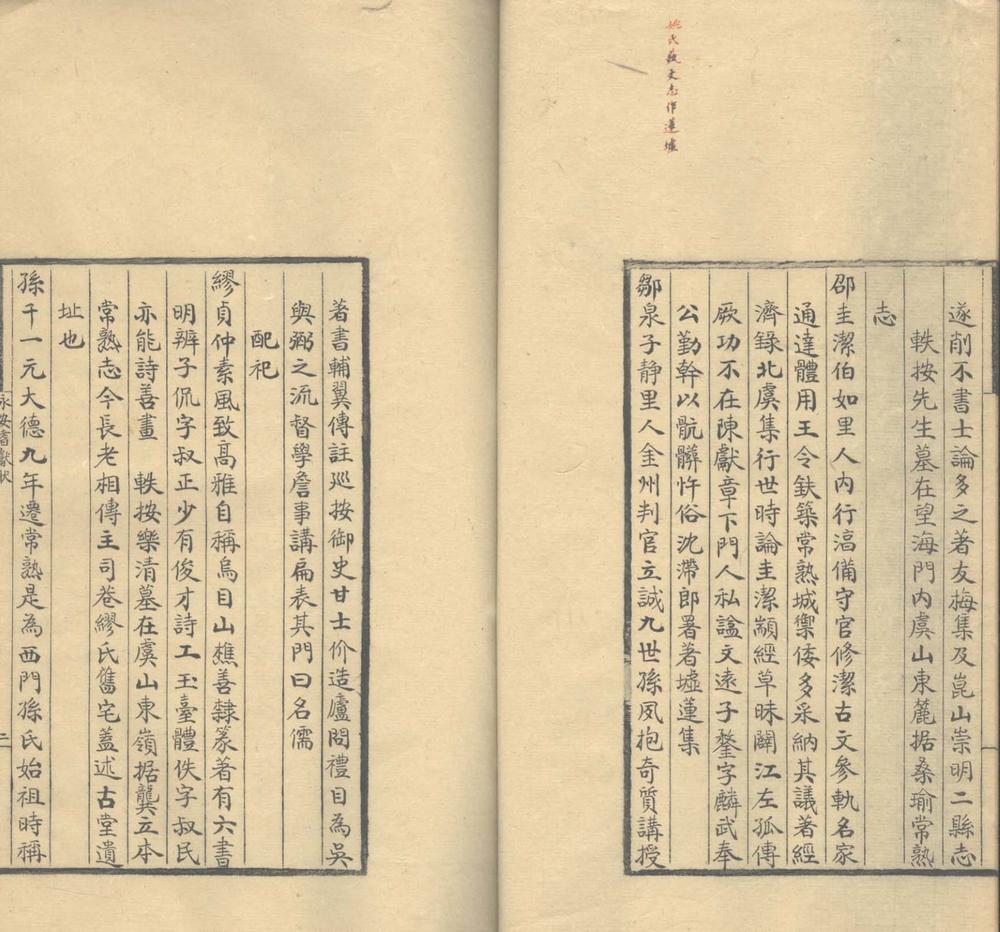 姚氏藝文志作蓮墟
遂削不書士論多之著友梅集及崑山崇明二縣志
軼按先生墓在望海門內虞山東麓据桑瑜常熟
志
邵圭潔伯如里人內行滀備守官修潔古文參軌名家
通達體用王令鈇築常熟城禦倭多采納其議著經
濟錄北虞集行世時論圭潔顓經草昧闢江左孤傳
厥功不在陳獻章下門人私諡文逺子鏊字麟武奉
公勤幹以骯髒忤俗沈滯郎署著墟蓮集
鄒泉子静里人金州判官立誠九世孫夙抱奇質講授
著書輔翼傳註廵按御史甘士价造廬問禮目為吳
與弼之流督學詹事講扁表其門曰名儒
配祀
繆貞仲素風致高雅自稱烏目山樵善隸篆著有六書
明辨子侃字叔正少有俊才詩工玉臺體佚字叔民
亦能詩善畫 軼按樂清墓在虞山東嶺据龔立本
常熟志今長老相傳主司巷繆氏舊宅蓋述古堂遺
址也
孫千一元大德九年遷常熟是為西門孫氏始祖時稱
二